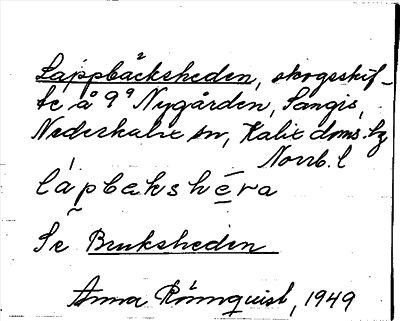 Lappbäcksheden, skogsskif-
te å 9⁹ Nygården, Sangis,
Nederkalix sn, Kalix doms. hg
Norrb. l
lápbakshēra
Se Bruksheden
Anna Rönnquist, 1949